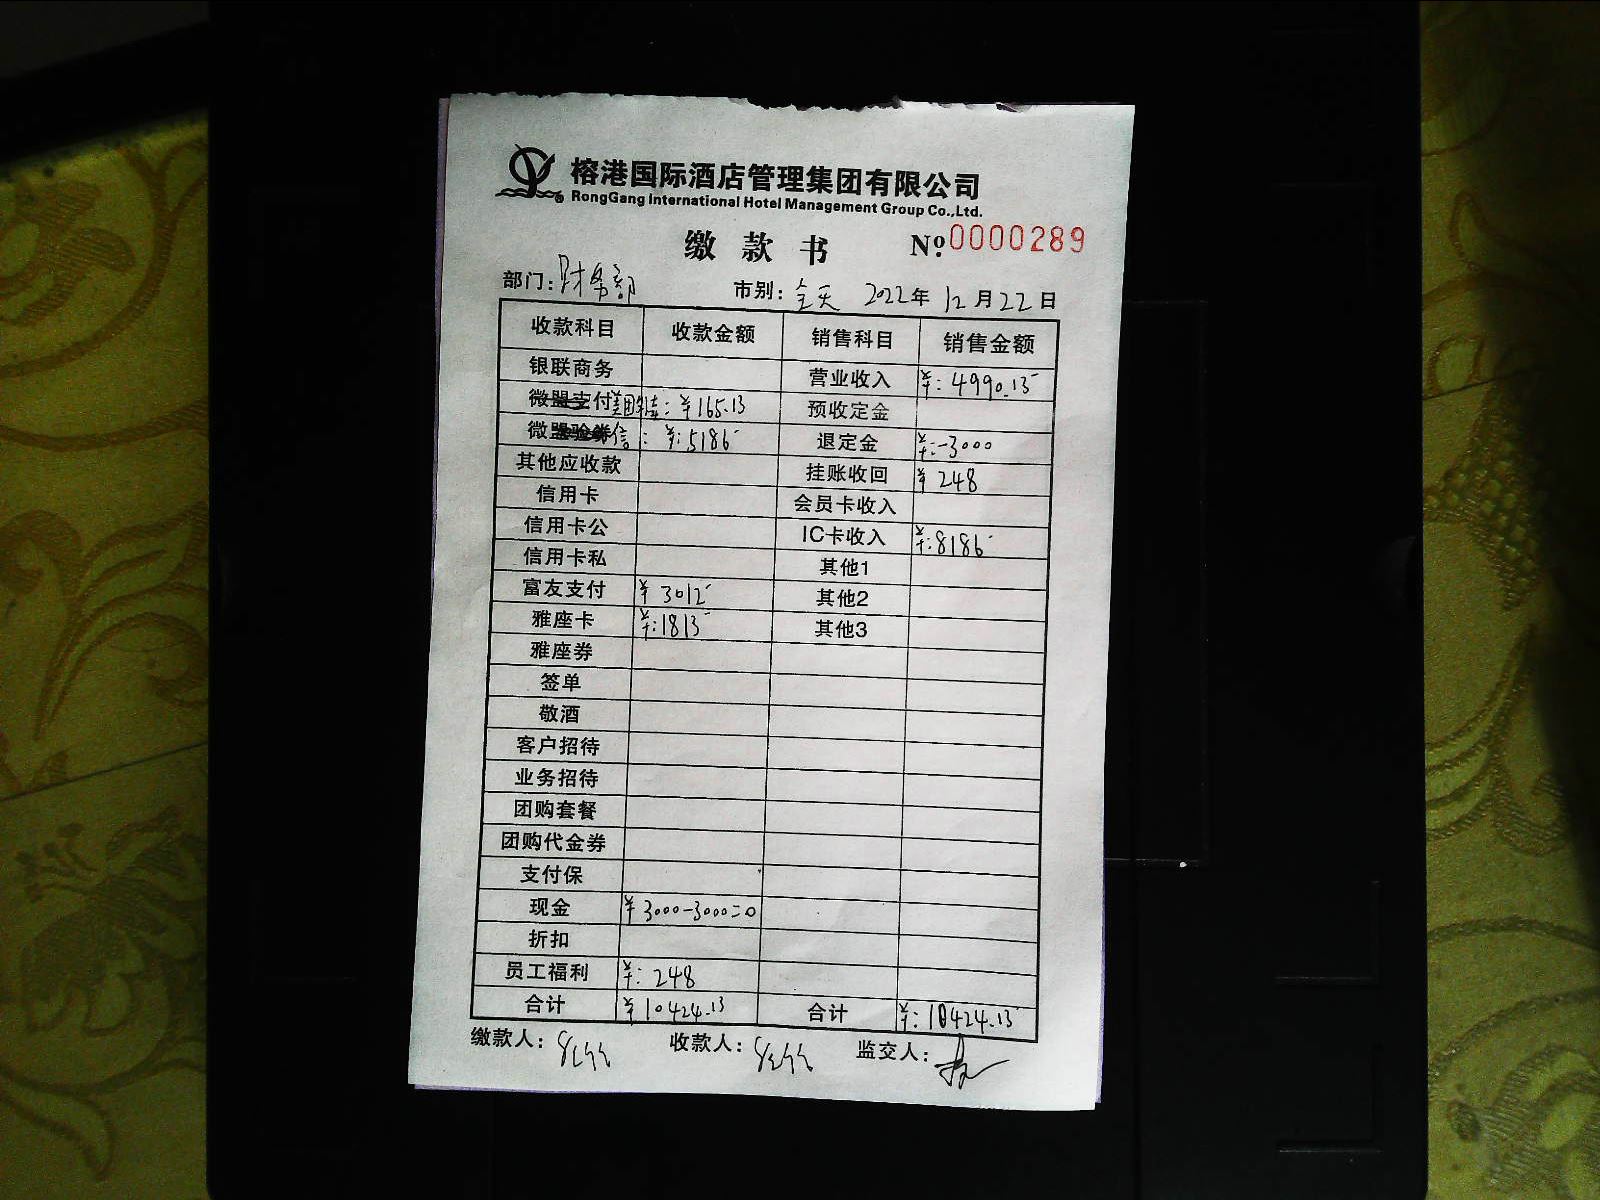 榕港国际酒店管理集团有限公司
RongGang International Hotel Management Group Co.,Ltd.
缴款书 Nº.0000289
部门:财务部 市别:全天 2022年12月22日
收款科目 收款金额 销售科目 销售金额
银联商务 营业收入 ¥:4990.13
微盟支付美团 : ¥165.13 预收定金
微盟验券信: ¥:5186 退定金 ¥:-3000
其他应收款 挂账收回 ¥248
信用卡 会员卡收入
信用卡公 IC卡收入 ¥:8186
信用卡私 其他1
富友支付 ¥3012 其他2
雅座卡 ¥:1813 其他3
雅座券
签单
敬酒
客户招待
业务招待
团购套餐
团购代金券
支付保
现金 ¥3000-3000=0
折扣
员工福利 ¥:248
合计 ¥10424.13 合计 ¥:10424.13
缴款人: 收款人: 监交人: